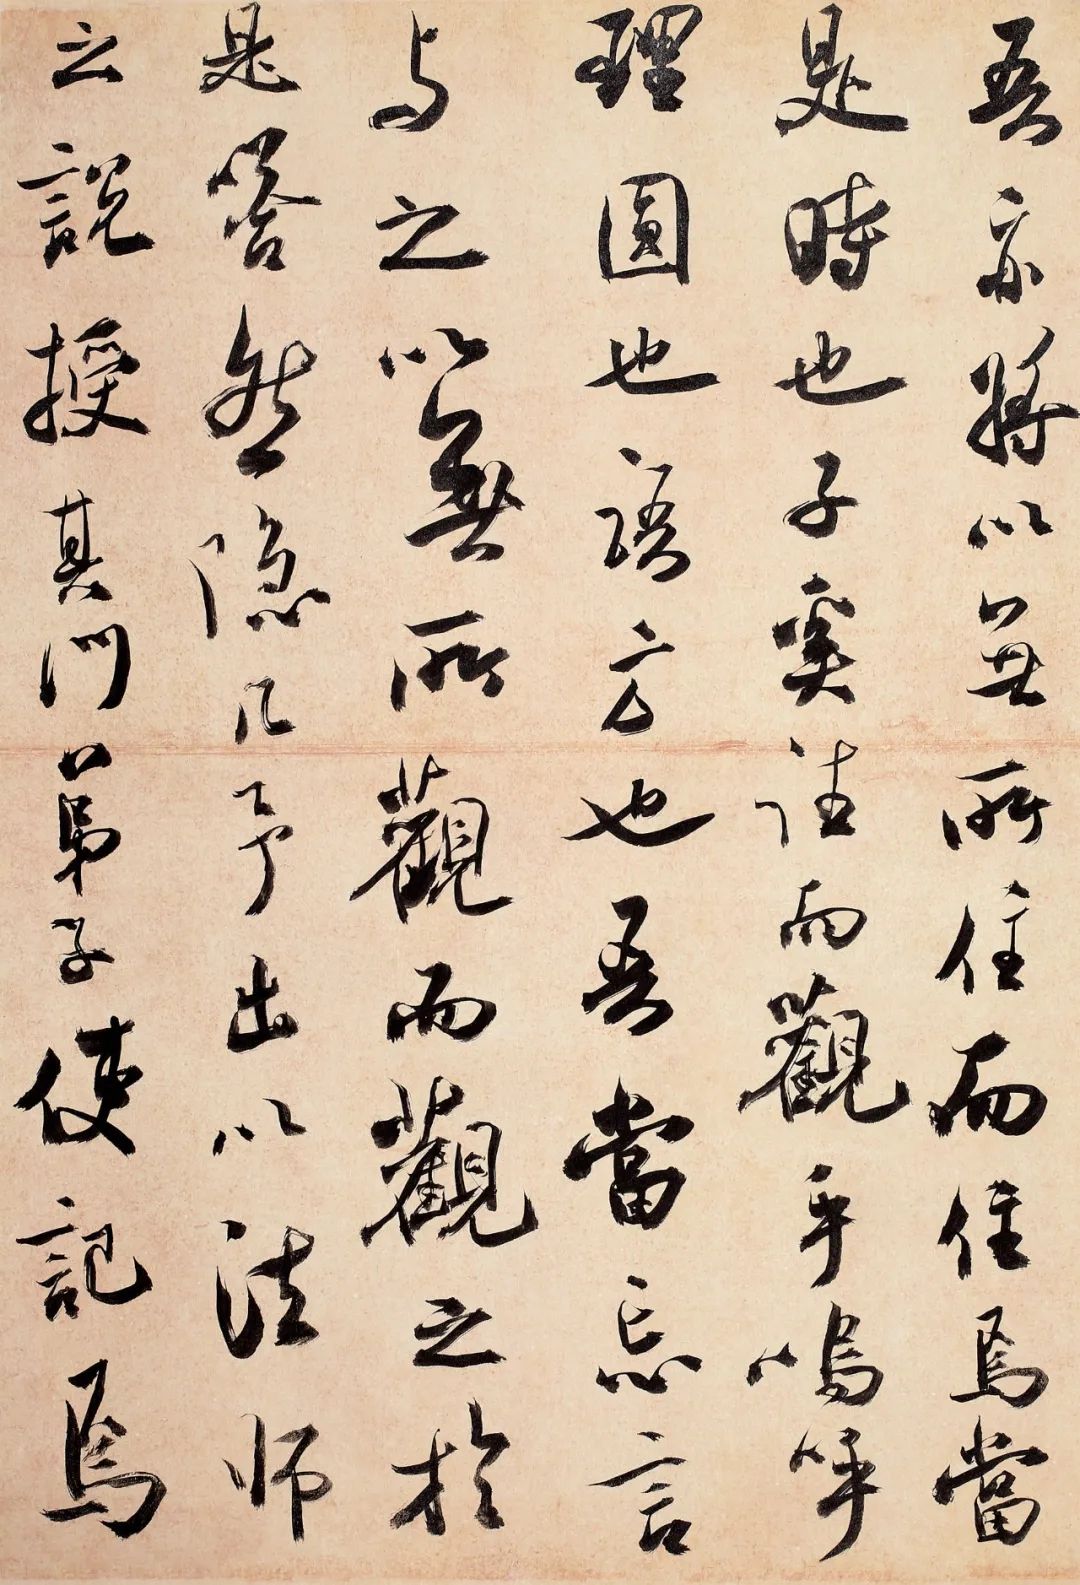 吾亦將以無所住而住焉當
是時也子奚往而觀乎嗚呼
理圓也語方也吾當忘言
與之以無所觀而觀之於
是答然隱几予出以法师
之說授其門弟子使記焉